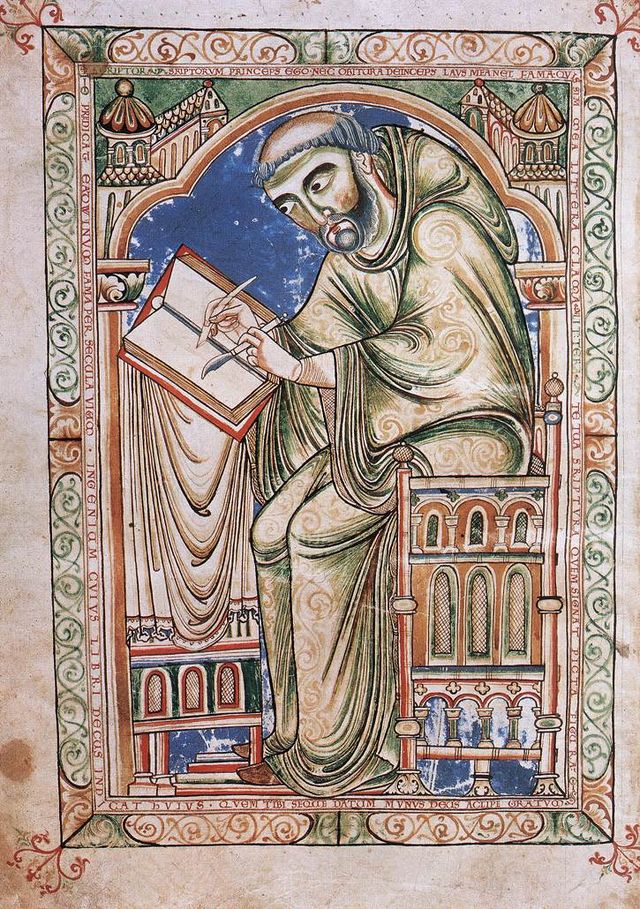 SCRIPTORUM PRINCEPS EGO · NEC OBITURA DEINCEPS LAVS MEA NEC FAMA · QVI
SIM MEA LITTERA CLAMA · LITTERA · TE TUA SCRIPTVRA QVEM SIGNAT PICTA FIGVRA
PREDICAT EADWINVM FAMA PER SECVLA VIVVM · INGENIVM CVIVS LIBRI DECVS INDI
CAT HVIVS · QVEM TIBI SEQVE DATVM MVNVS DEVS ACCIPE GRATVM